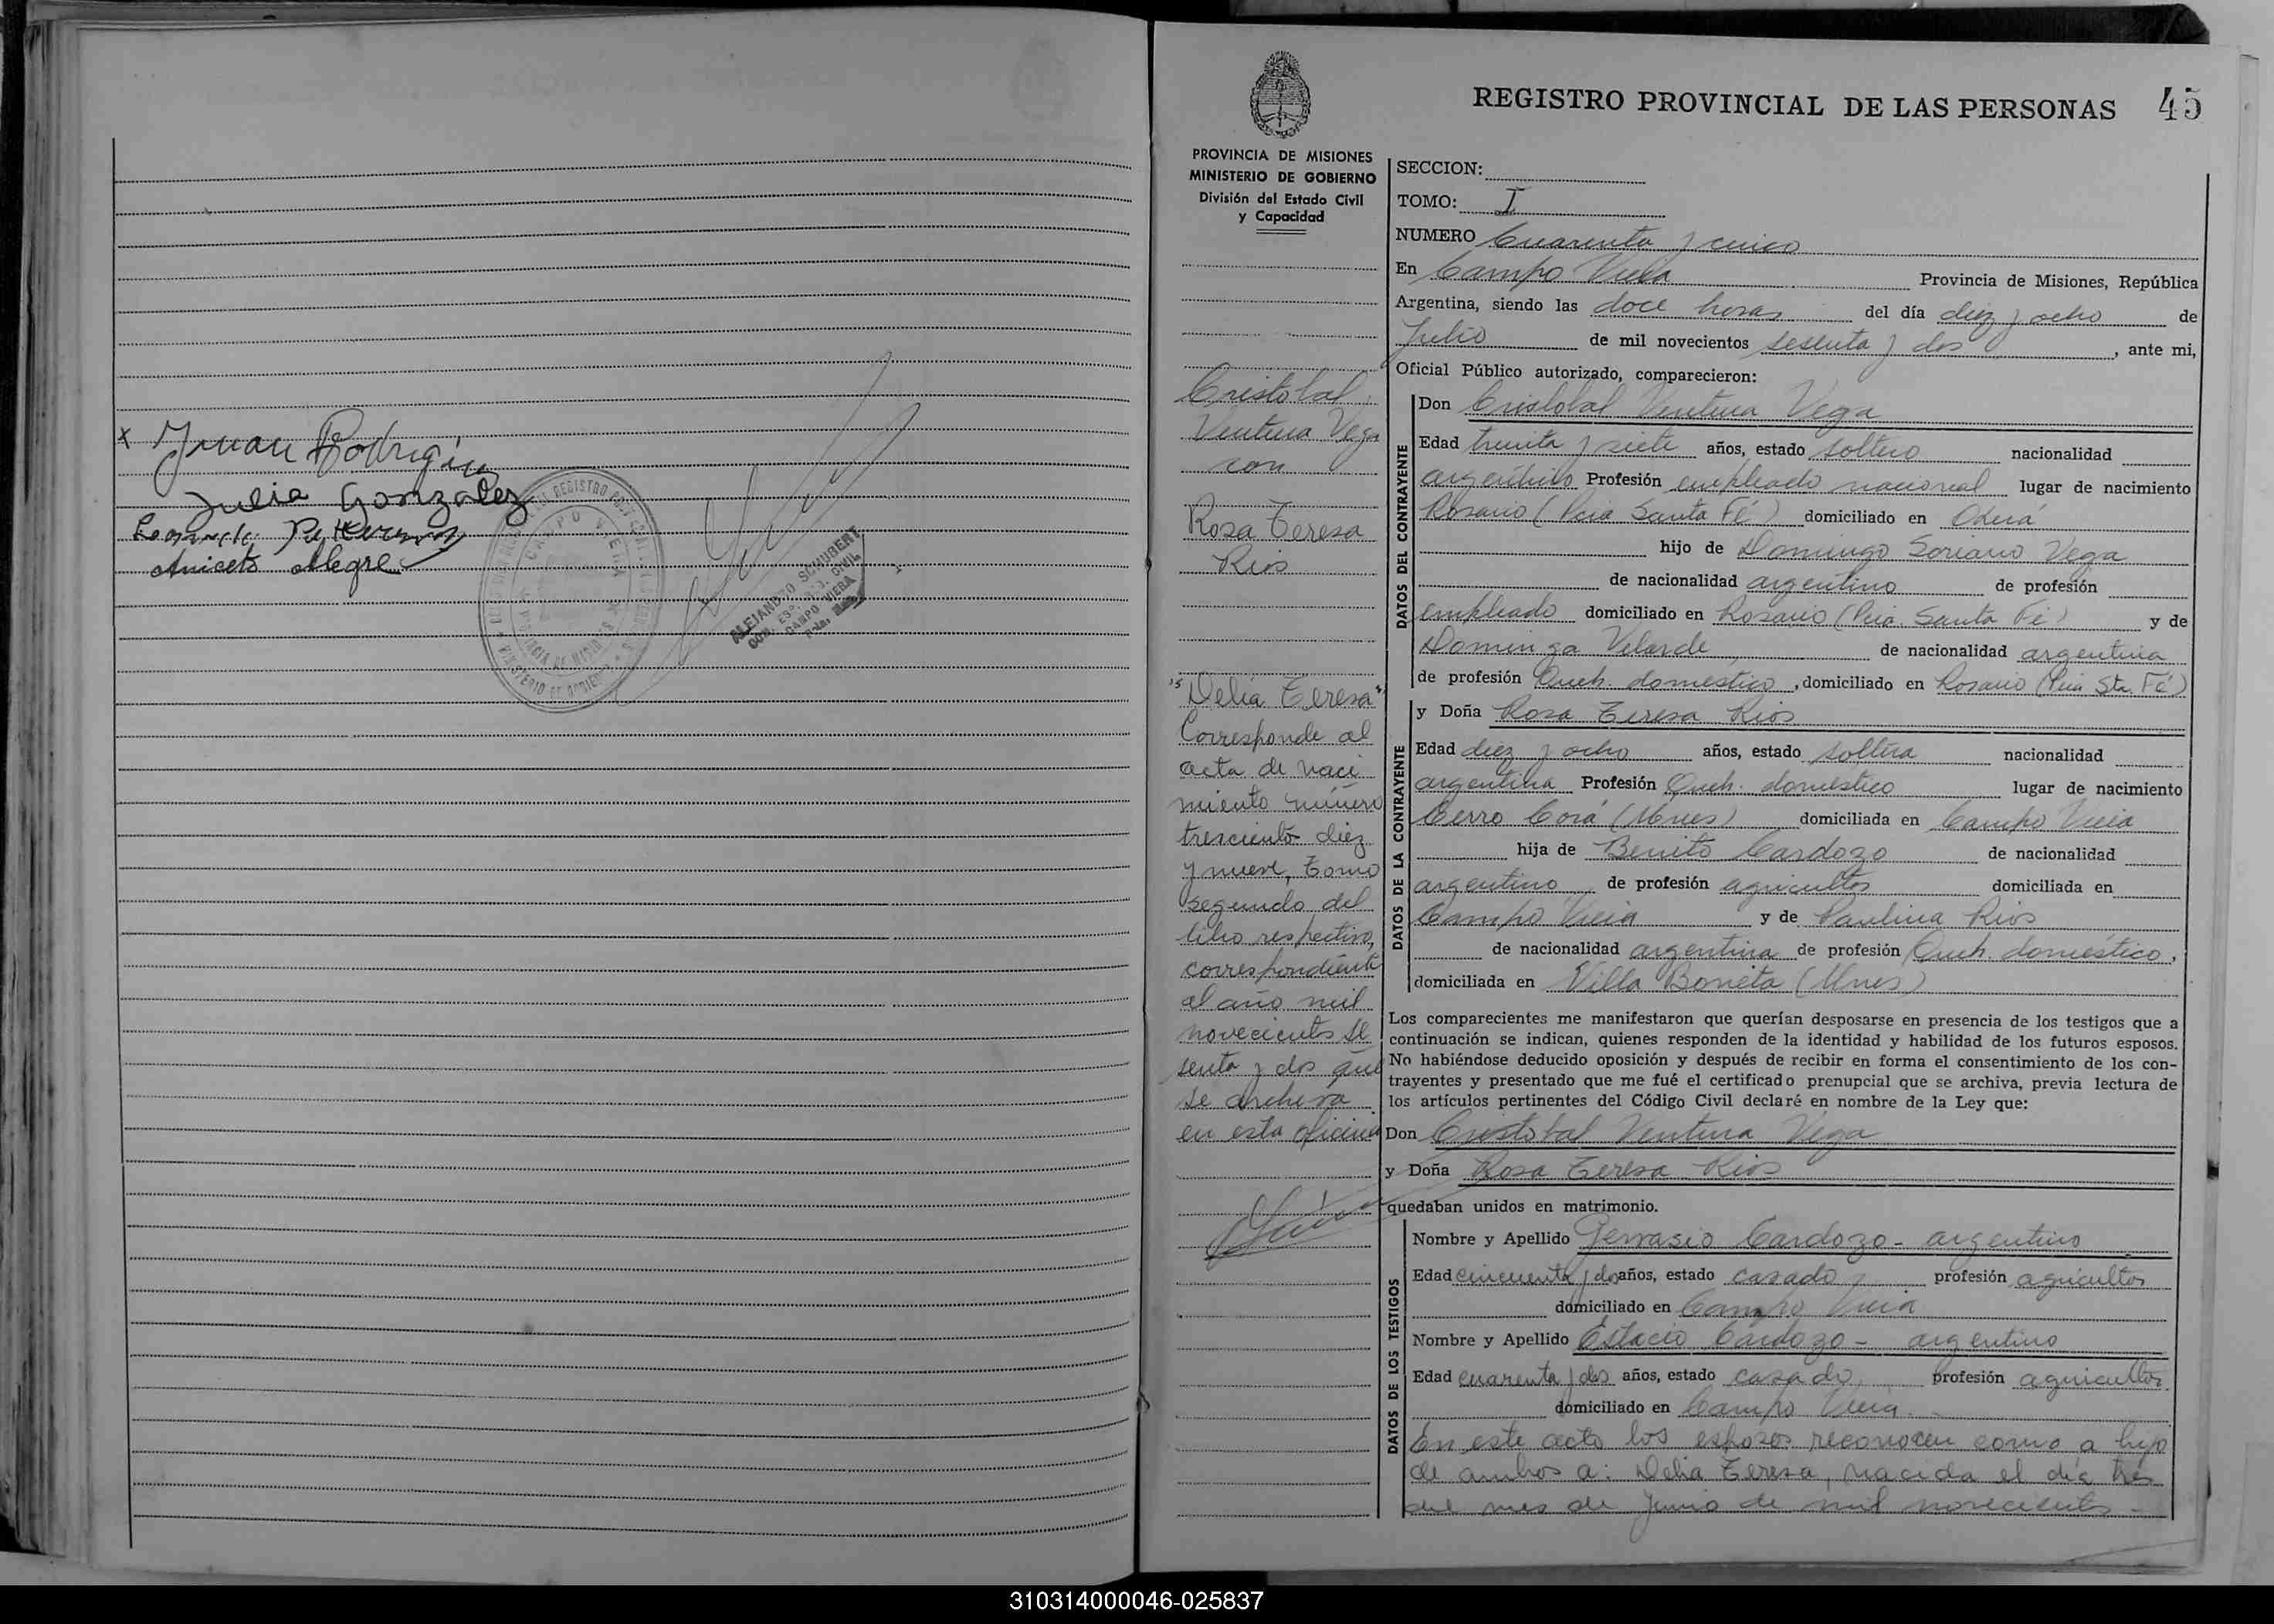 x Juan Rodrigue
Julia Gonzalez
Aniceto Alegre
REGISTRO
CAMPO VIERA
PROVINCIA DE MISIONES
MINISTERIO DE GOBIERNO
ALEJANDRO SCHUBERT
CAMPO VIERA
REGISTRO PROVINCIAL DE LAS PERSONAS 45
PROVINCIA DE MISIONES
MINISTERIO DE GOBIERNO
División del Estado Civil
y Capacidad
Cristobal
Ventura Vega
con
Rosa Teresa
Rios
"Delia Teresa"
Corresponde al
acta de naci
miento número
tresciento diez
y nueve, Tomo
segundo del
libro respectivo,
correspondiente
al año mil
novecientos se
senta y dos que
se archiva
en esta oficina
SECCION:
TOMO: I
NUMERO Cuarenta y cinco
En Campo Viera Provincia de Misiones, República
Argentina, siendo las doce horas del día diez y ocho de
Julio de mil novecientos sesenta y dos, ante mi,
Oficial Público autorizado, comparecieron:
DATOS DEL CONTRAYENTE
Don Cristobal Ventura Vega
Edad treinta y siete años, estado soltero nacionalidad
argentino Profesión empleado nacional lugar de nacimiento
Rosario (Pcia Santa Fé) domiciliado en Oberá
hijo de Domingo Soriano Vega
de nacionalidad argentino de profesión
empleado domiciliado en Rosario (Pcia. Santa Fé) y de
Dominga Velarde de nacionalidad argentina
de profesión Queh. domestico, domiciliado en Rosario (Pcia Sta. Fé)
DATOS DE LA CONTRAYENTE
y Doña Rosa Teresa Rios
Edad diez y ocho años, estado soltera nacionalidad
argentina Profesión Queh. doméstico lugar de nacimiento
Cerro Corá (Mnes) domiciliada en Campo Viera
hija de Benito Cardozo de nacionalidad
argentino de profesión agricultor domiciliada en
Campo Viera y de Paulina Rios
de nacionalidad argentina de profesión Queh. doméstico,
domiciliada en Villa Bonita (Mnes)
Los comparecientes me manifestaron que querían desposarse en presencia de los testigos que a
continuación se indican, quienes responden de la identidad y habilidad de los futuros esposos.
No habiéndose deducido oposición y después de recibir en forma el consentimiento de los con-
trayentes y presentado que me fué el certificado prenupcial que se archiva, previa lectura de
los artículos pertinentes del Código Civil declaré en nombre de la Ley que:
Don Cristobal Ventura Vega
y Doña Rosa Teresa Rios
quedaban unidos en matrimonio.
DATOS DE LOS TESTIGOS
Nombre y Apellido Gervasio Cardozo - argentino
Edad cincuenta y dos años, estado casado, profesión agricultor
domiciliado en Campo Viera
Nombre y Apellido Estacio Cardozo - argentino
Edad cuarenta y dos años, estado casado, profesión agricultor
domiciliado en Campo Viera.
En este acto los esposos reconocen como a hijo
de ambos a: Delia Teresa, nacida el día tres
del mes de Junio de mil novecientos -
310314000046-025837